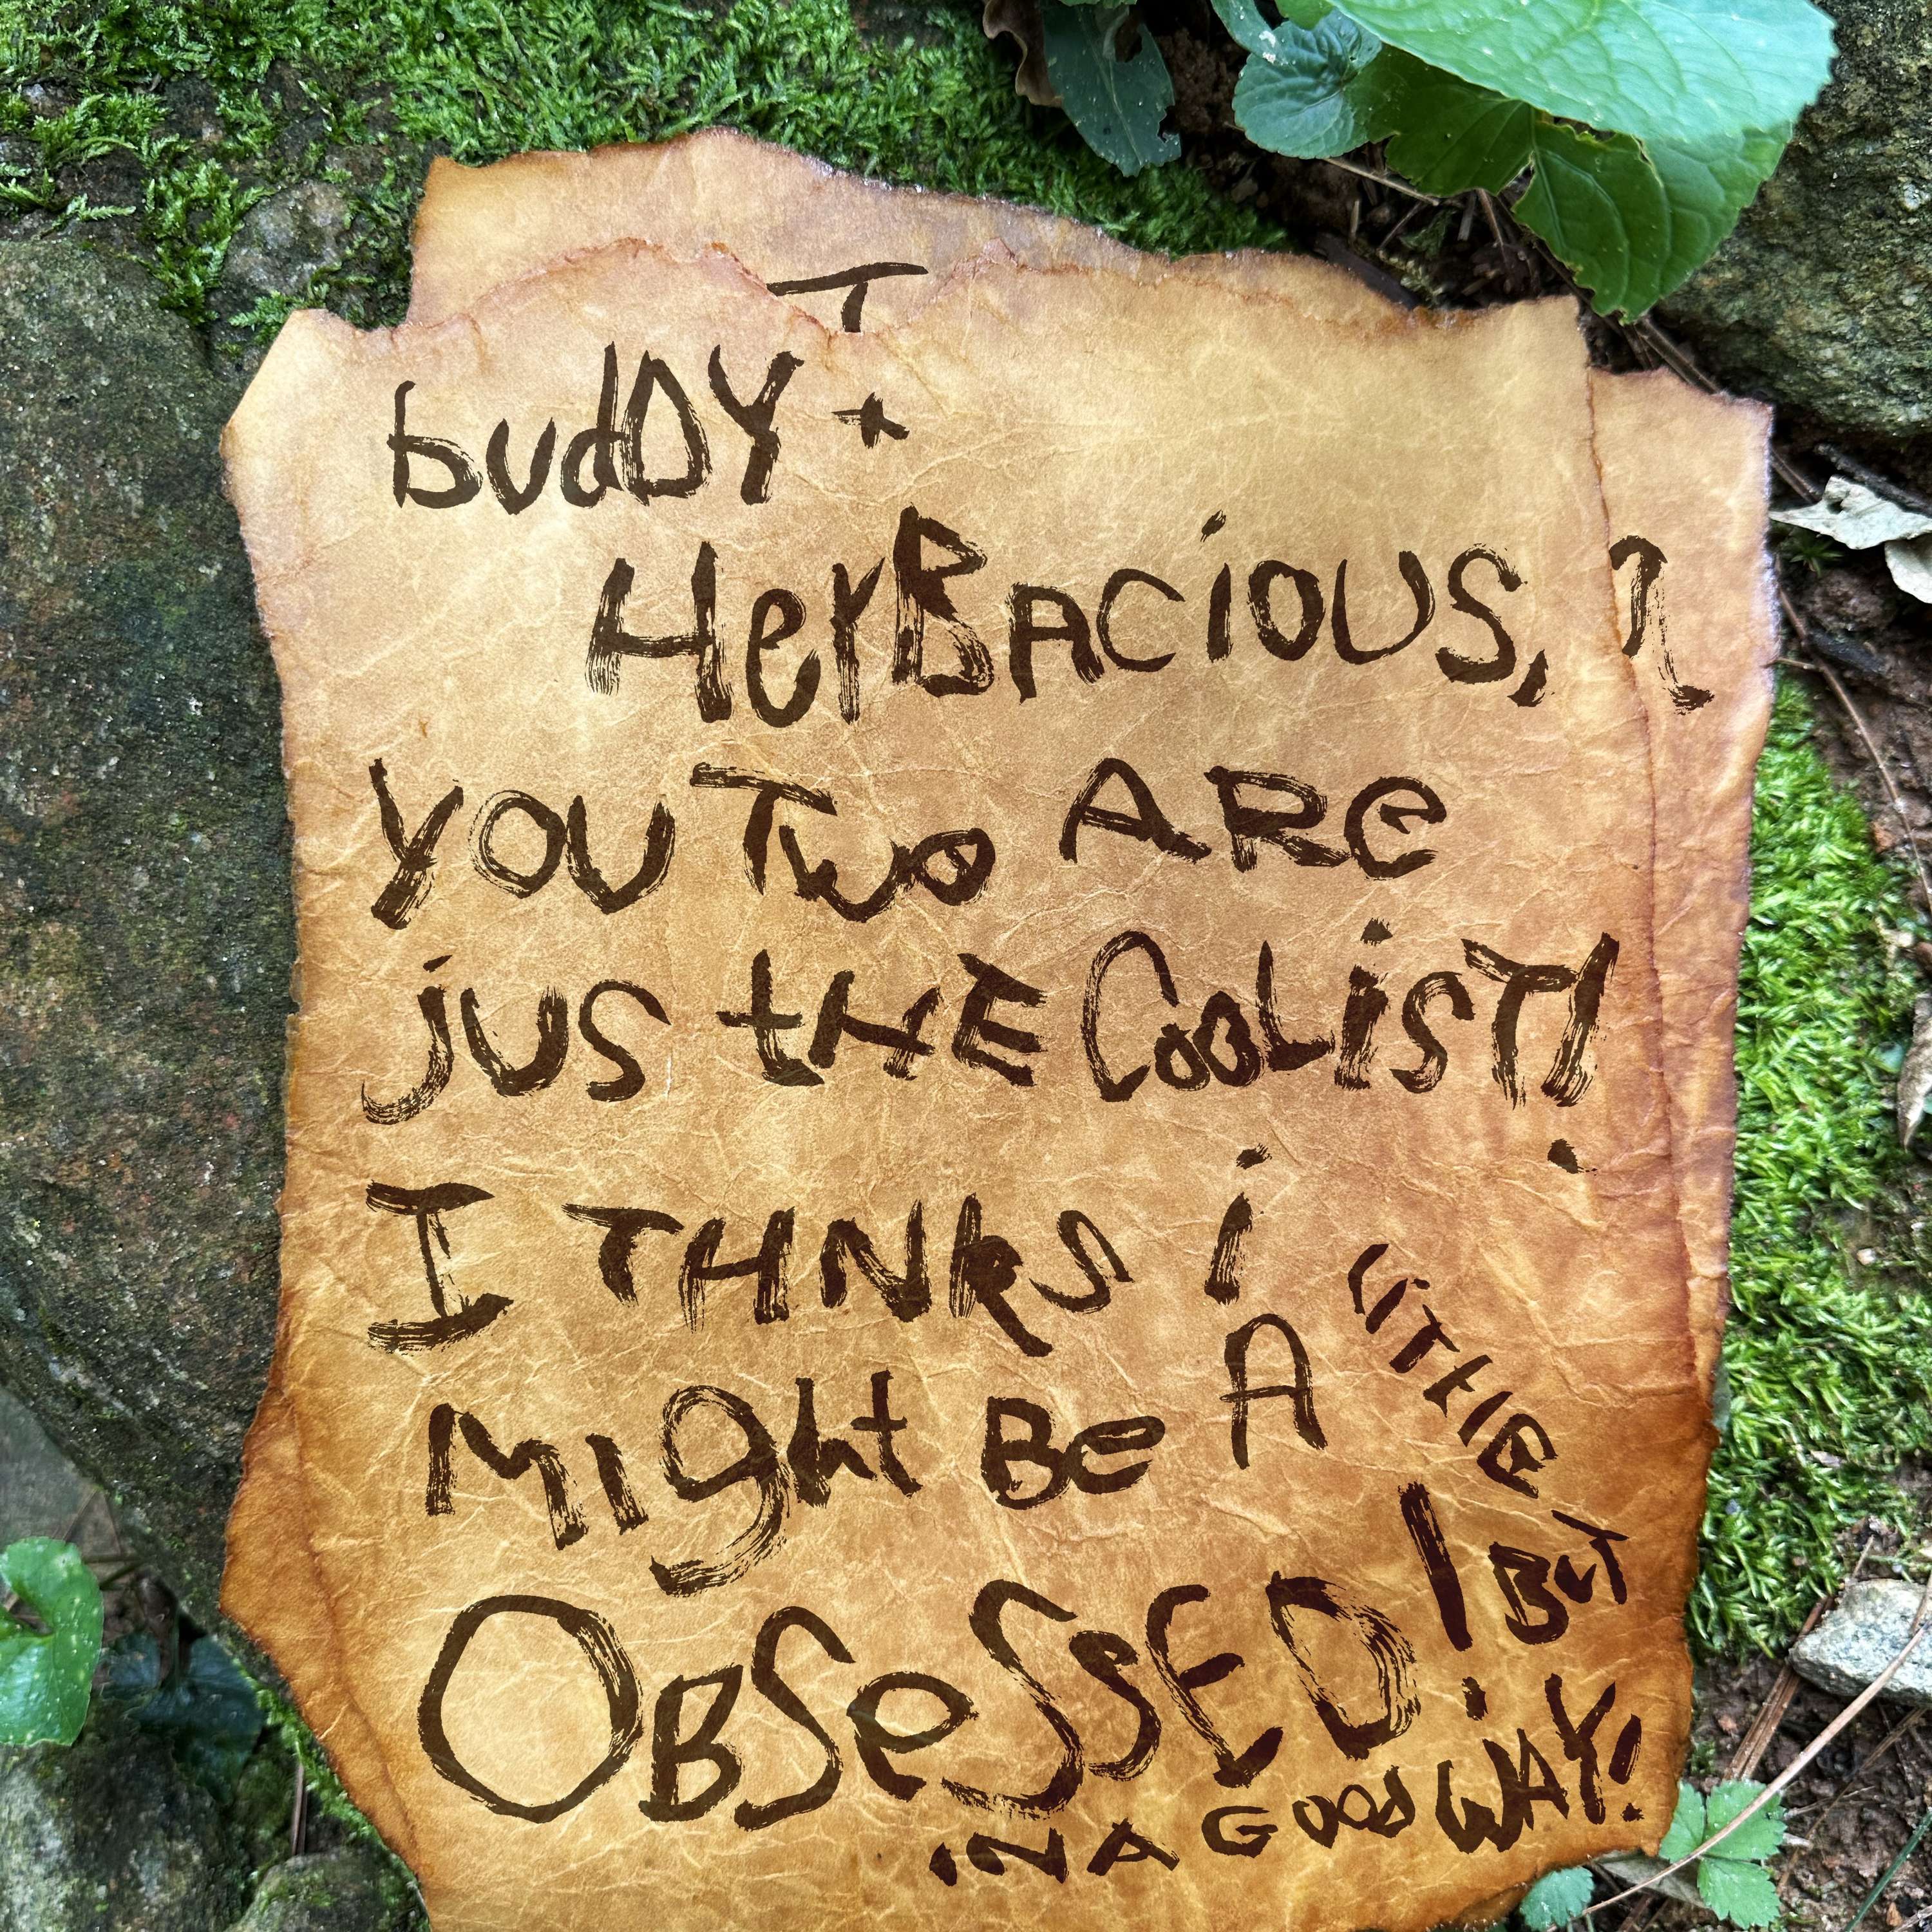 T
buddY +
HerBACiOUS,
YOU Two ARe
jUS tHE CooLiST!
I THNKS i
Might Be A LITHE
OBSeSSED! BUT
IN A GOOD WAY!